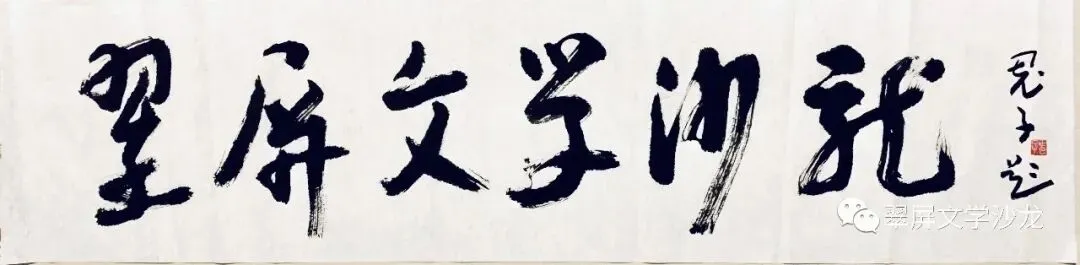 翠屏文学沙龙
子题
翠屏文学沙龙